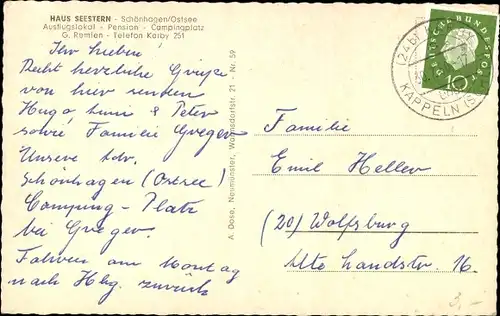 HAUS SEESTERN - Schönhagen/Ostsee
Ausflugslokal - Pension - Campingplatz
G. Ramlen - Telefon Karby 251
Ihr Lieben!
Recht herzliche Grüße
von hier senden
Hugo, Lumi & Peter
sowie Familie Greger
Unsere Adr.
Schönhagen (Ostsee)
Camping-Platz
bei Greger.
Fahren am Montag
nach Hbg. zurück
A. Dose, Neumünster, Warmsdorfstr. 21 - Nr. 59
(24b)
KAPPELN (S
DEUTSCHE BUNDESPOST
10
Familie
Emil Heller
(20) Wolfsburg
Alte Landstr. 16.
3,-